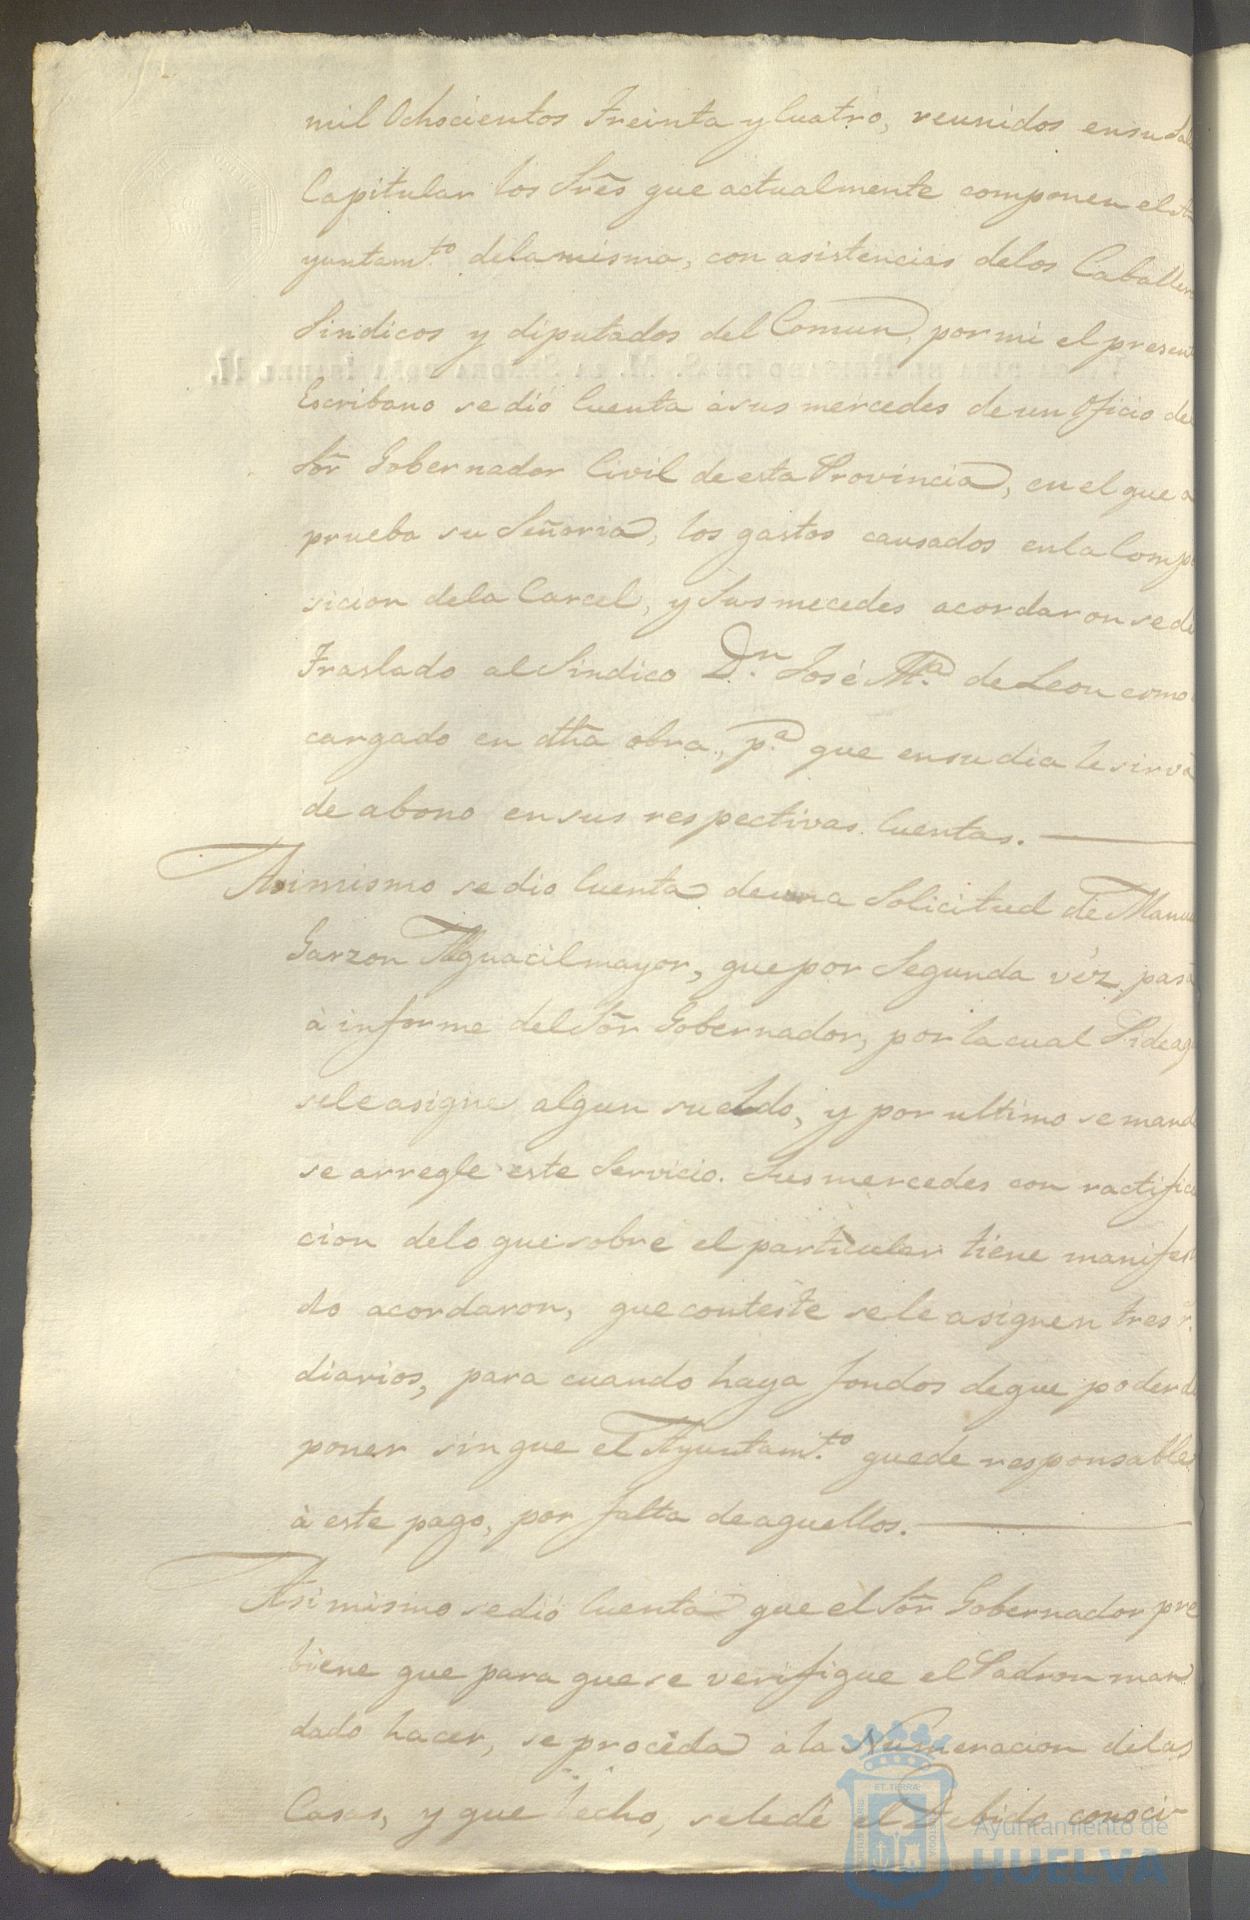 mil Ochocientos Treinta y Cuatro, reunidos en su Sal
Capitular los Sres que actualmente componen el A
yuntamto. de la misma, con asistencias de los Caballer
Sindicos y diputados del Comun, por mi el present
Escribano se dió Cuenta à sus mercedes de un Oficio del
Sor Gobernador Civil de esta Provincia, en el que a
prueba su Señoria, los gastos causados en la Compo
sicion de la Carcel, y Sus mecedes acordaron se dé
Traslado al Sindico Dn. José Ma. de Leon como
cargado en dha obra, pa. que en su dia le sirva
de abono en sus respectivas Cuentas.
Asimismo se dio Cuenta de una Solicitud de Manu
Garzon Alguacil mayor, que por Segunda véz pasa
à informe del Sor Gobernador, por la cual Pide a q
se le asigne algun sueldo, y por ultimo se manda
se arregle este Servicio. Sus mercedes con ractifica
cion de lo que sobre el particular tiene manifes
do acordaron, que conteste se le asiguen tres r.
diarios, para cuando haya fondos de que poder di
poner sin que el Ayuntamto. quede responsable
à este pago, por falta de aquellos.
Asimismo se dió Cuenta que el Sor Gobernador pre
biene que para que se verifique el Padron man
dado hacer, se proceda à la Numeracion de las
Casas, y que hecho, se le dé el Debido conoci-
ET TERRA
Ayuntamiento de
HUELVA